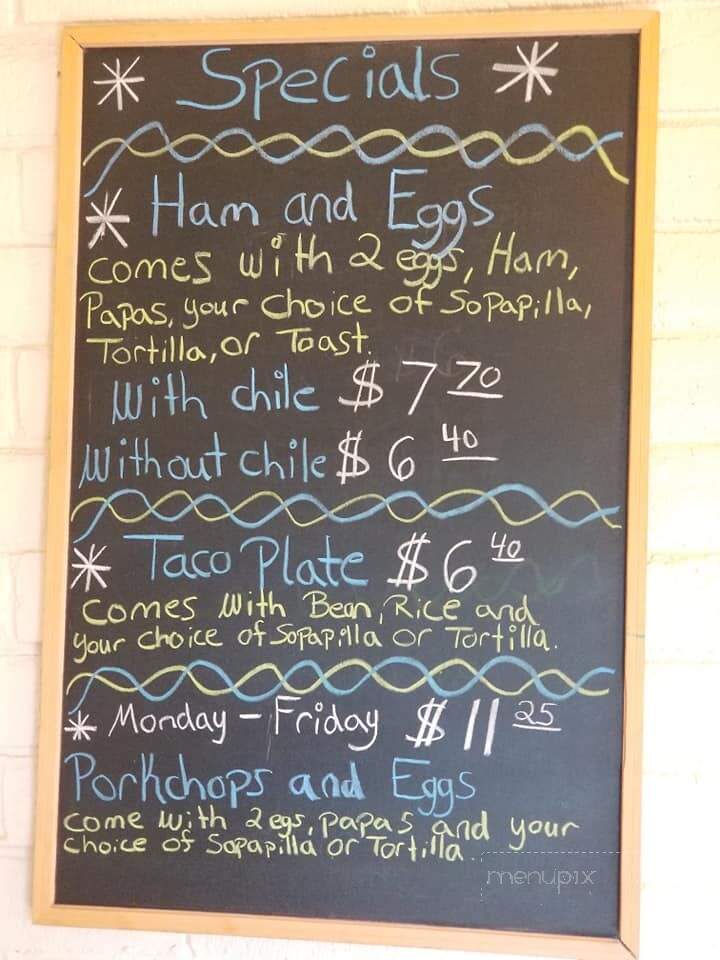 * Specials *
* Ham and Eggs
comes with 2 eggs, Ham,
Papas, your choice of Sopapilla,
Tortilla, or Toast.
With chile $7 70
Without chile $6 40
* Taco Plate $6 40
comes with Bean, Rice and
your choice of Sopapilla or Tortilla.
* Monday - Friday $11 25
Porkchops and Eggs
come with 2 egs, papas and your
choice of Sapapilla or Tortilla.
menupix